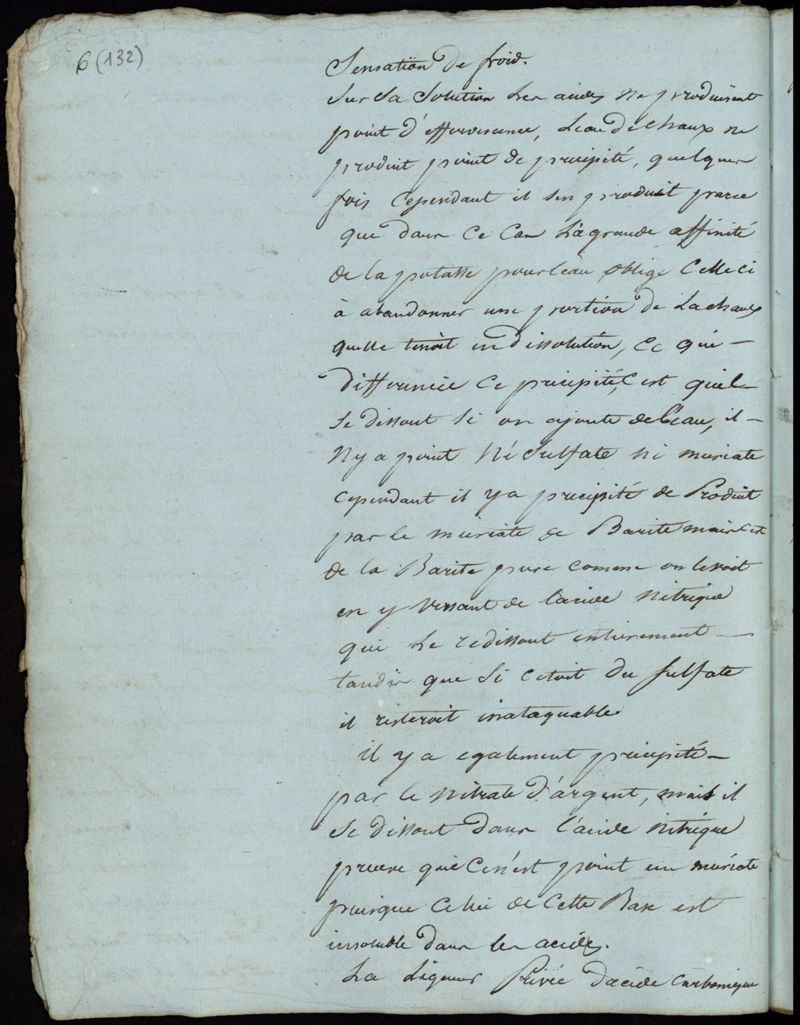 6 (132)
Sensation de froid.
Sur Sa Solution Les acides Ne produisent
point d'effervesence, Leau de chaux ne
produit point de precipité, quelques
fois Cependant il sen produit parce
que dans Ce Cas La grande affinité
de la potasse pour leau oblige Celle ci
à abandonner une portion de La chaux
quelle tenoit en dissolution, Ce qui -
differencie Ce precipité, C'est quil -
Se dissout Si on ajoute de l'eau, il -
Ny a point Ni Sulfate Ni muriate
Cependant il y a precipité de Produit
par le muriate de Barite mais C'est
de la Barite pure comme on le voit
en y Versant de l'acide Nitrique
qui Le redissout entierement -
tandis que Si C'etoit du Sulfate
il resteroit inataquable
il y a egalement precipité -
par le Nitrate d'argent, mais il
Se dissout dans l'acide Nitrique
preuve que Ce n'est point un muriate
puisque Celui de Cette Base est
insoluble dans les acides.
La Liqueur Privée d'acide Carbonique